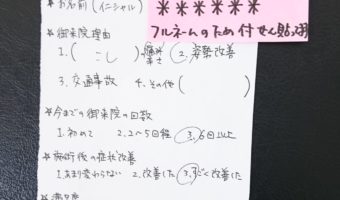 ＊お名前(イニシャル)
＊＊＊＊＊＊
フルネームのため付せん貼って
＊御来院理由
1.(こし)痛み 辛さ 2.姿勢改善
3.交通事故 4.その他(
＊今までの御来院の回数
1.初めて 2.2〜5回程 3.6回以上
＊施術後の症状改善
1.あまり変わらない 2.改善した 3.すごく改善した
＊満足度